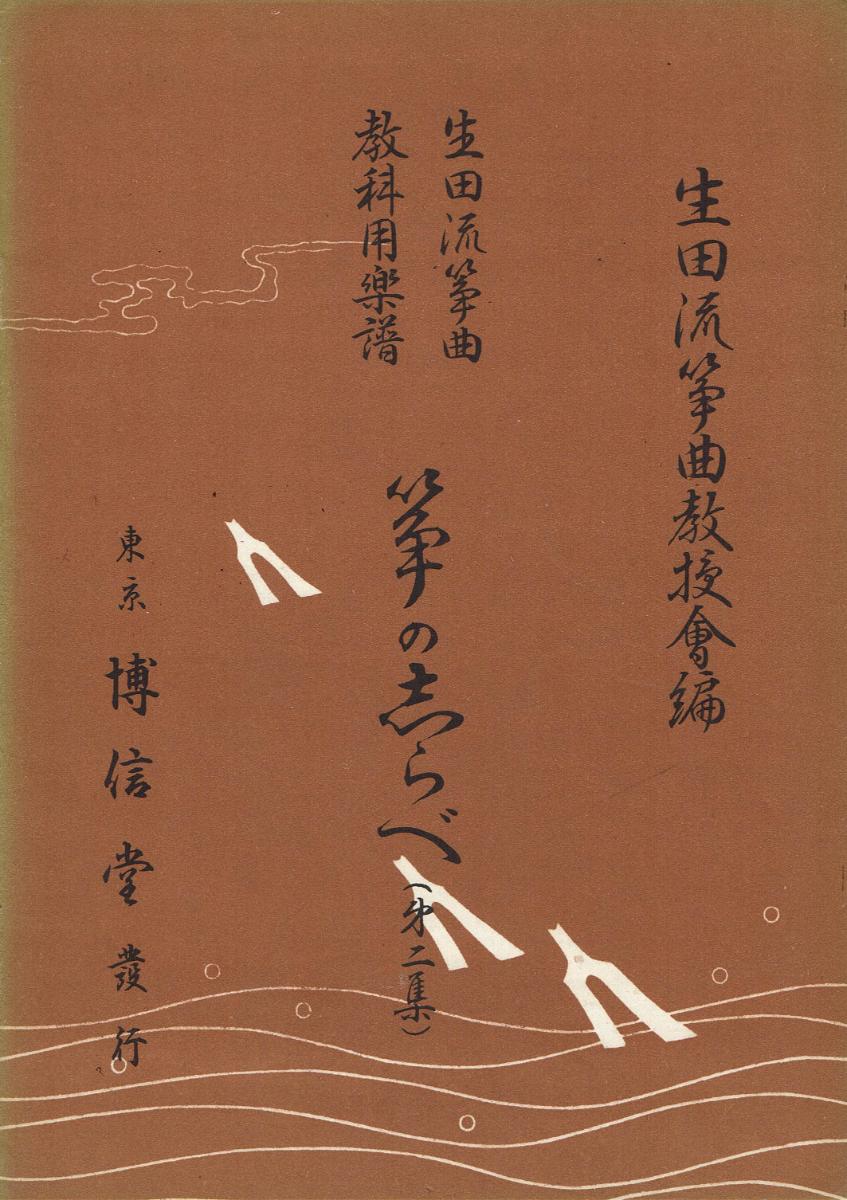 生田流箏曲教授會編
生田流箏曲
教科用楽譜
箏の志らべ
（第二集）
東京 博信堂發行